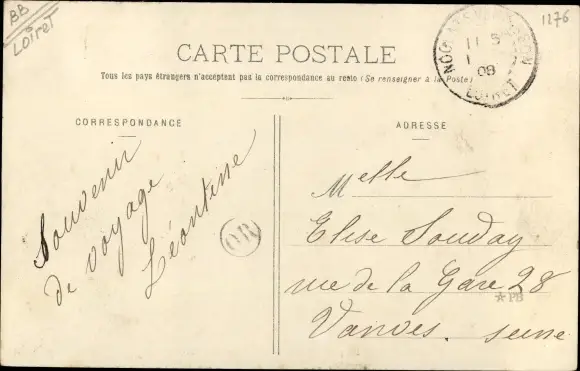 BB
Loiret
1276
CARTE POSTALE
Tous les pays étrangers n'acceptent pas la correspondance au recto (Se renseigner à la Poste)
CORRESPONDANCE
ADRESSE
11 5
08
LOIRET
Souvenir
de voyage
Léontine
OR
Melle
Elise Souday
rue de la Gare 28
PB
Vanves. Seine